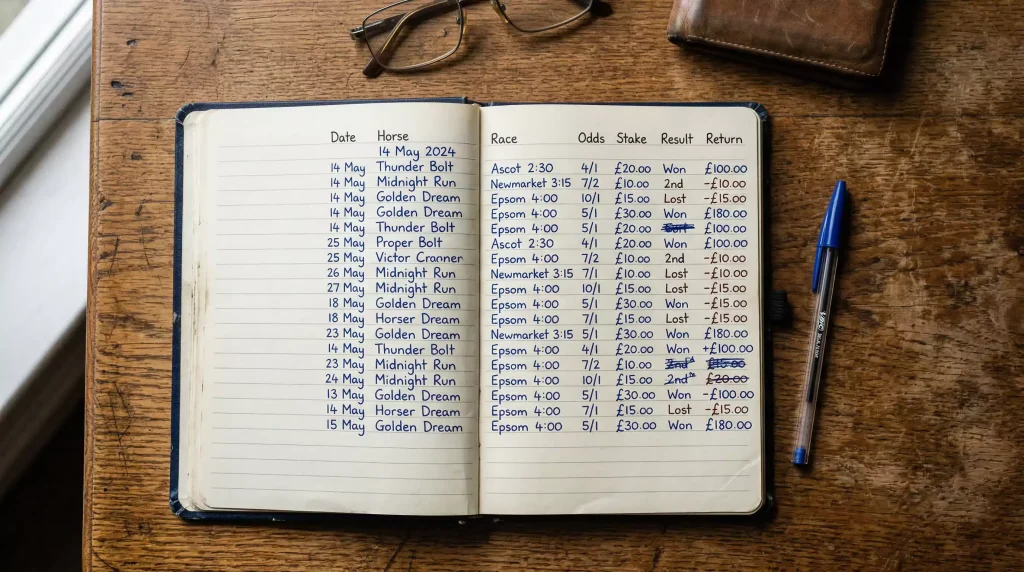 Date Horse Race Odds Stake Result Return
14 May 2024
14 May Thunder Bolt Ascot 2:30 4/1 £20.00 Won £100.00
14 May Midnight Run Newmarket 3:15 7/2 £10.00 2nd -£10.00
14 May Golden Dream Epsom 4:00 10/1 £15.00 Lost -£15.00
14 May Golden Dream Epsom 4:00 5/1 £30.00 Won £180.00
14 May Thunder Bolt Epsom 4:00 5/1 £20.00 £100.00
25 May Proper Bolt Ascot 2:30 4/1 £20.00 Won £100.00
25 May Victor Cranner Epsom 4:00 7/2 £10.00 2nd -£10.00
26 May Midnight Run Newmarket 3:15 7/1 £10.00 Lost -£10.00
27 May Midnight Run Epsom 4:00 10/1 £15.00 Lost -£15.00
18 May Golden Dream Epsom 4:00 5/1 £30.00 Won -£15.00
18 May Horser Dream Epsom 4:00 7/1 £15.00 Lost -£15.00
23 May Golden Dream Newmarket 3:15 5/1 £30.00 Won £180.00
14 May Thunder Bolt Epsom 4:00 4/1 £20.00 Won +£100.00
23 May Midnight Run Epsom 4:00 7/2 £10.00
24 May Midnight Run Epsom 4:00 10/1 £15.00 2nd £20.00
13 May Golden Dream Epsom 4:00 5/1 £30.00 Won -£100.00
14 May Horser Dream Epsom 4:00 7/1 £15.00 Lost -£15.00
15 May Golden Dream Epsom 4:00 5/1 £30.00 Won £180.00